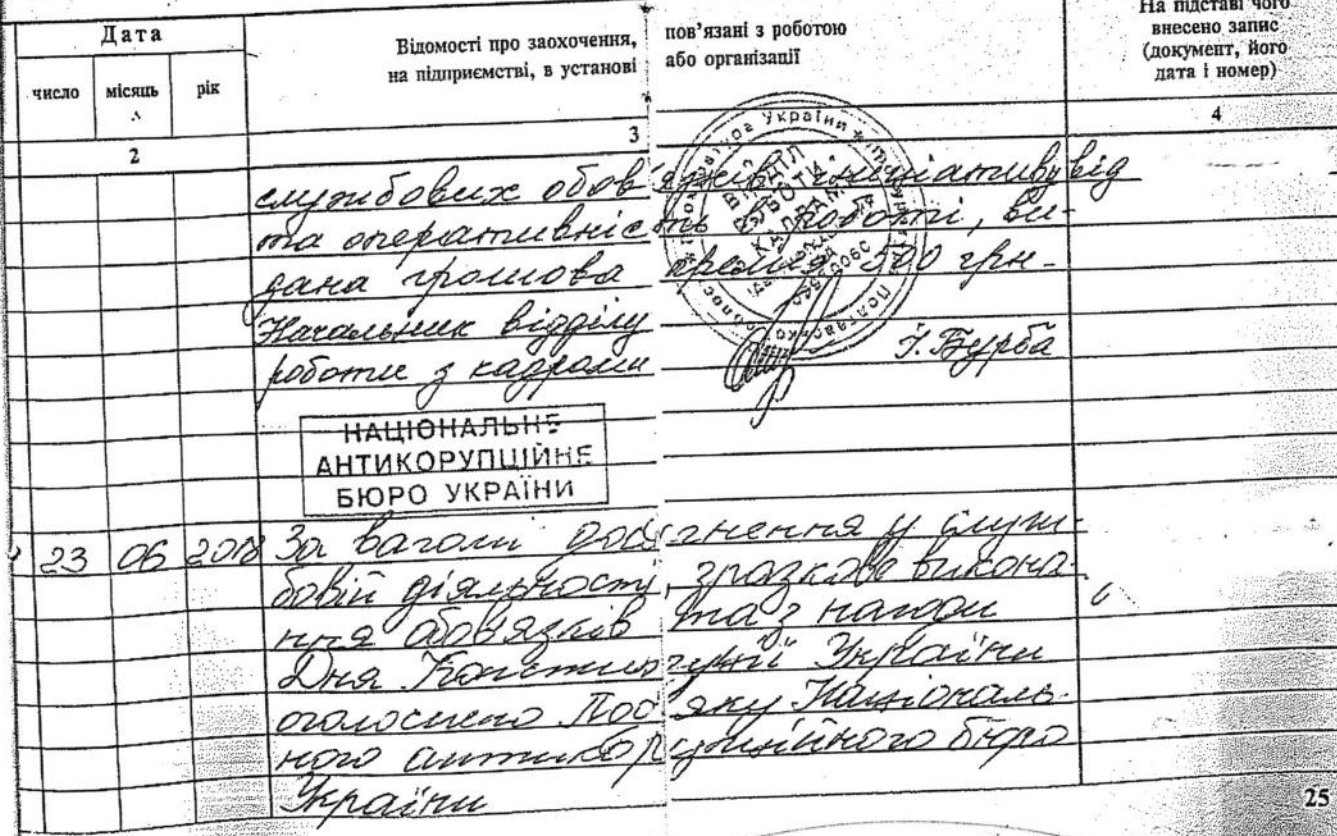 Дата
Відомості про заохочення, пов’язані з роботою
на підприємстві, в установі або організації
На підставі чого
внесено запис
(документ, його
дата і номер)
число місяць рік
2 3 4
службових обов'язків, ініціативу від
та оперативність в роботі, ви-
дана грошова премія 500 грн.
Начальник відділу
роботи з кадрами І. Бурба
НАЦІОНАЛЬНЕ
АНТИКОРУПЦІЙНЕ
БЮРО УКРАЇНИ
23 06 2018 За вагомі досягнення у служ-
бовій діяльності, зразкове викона-
ння обов'язків та з нагоди
Дня Конституції України
оголошено Подяку Націоналъ-
ного антикорупційного бюро
України
25